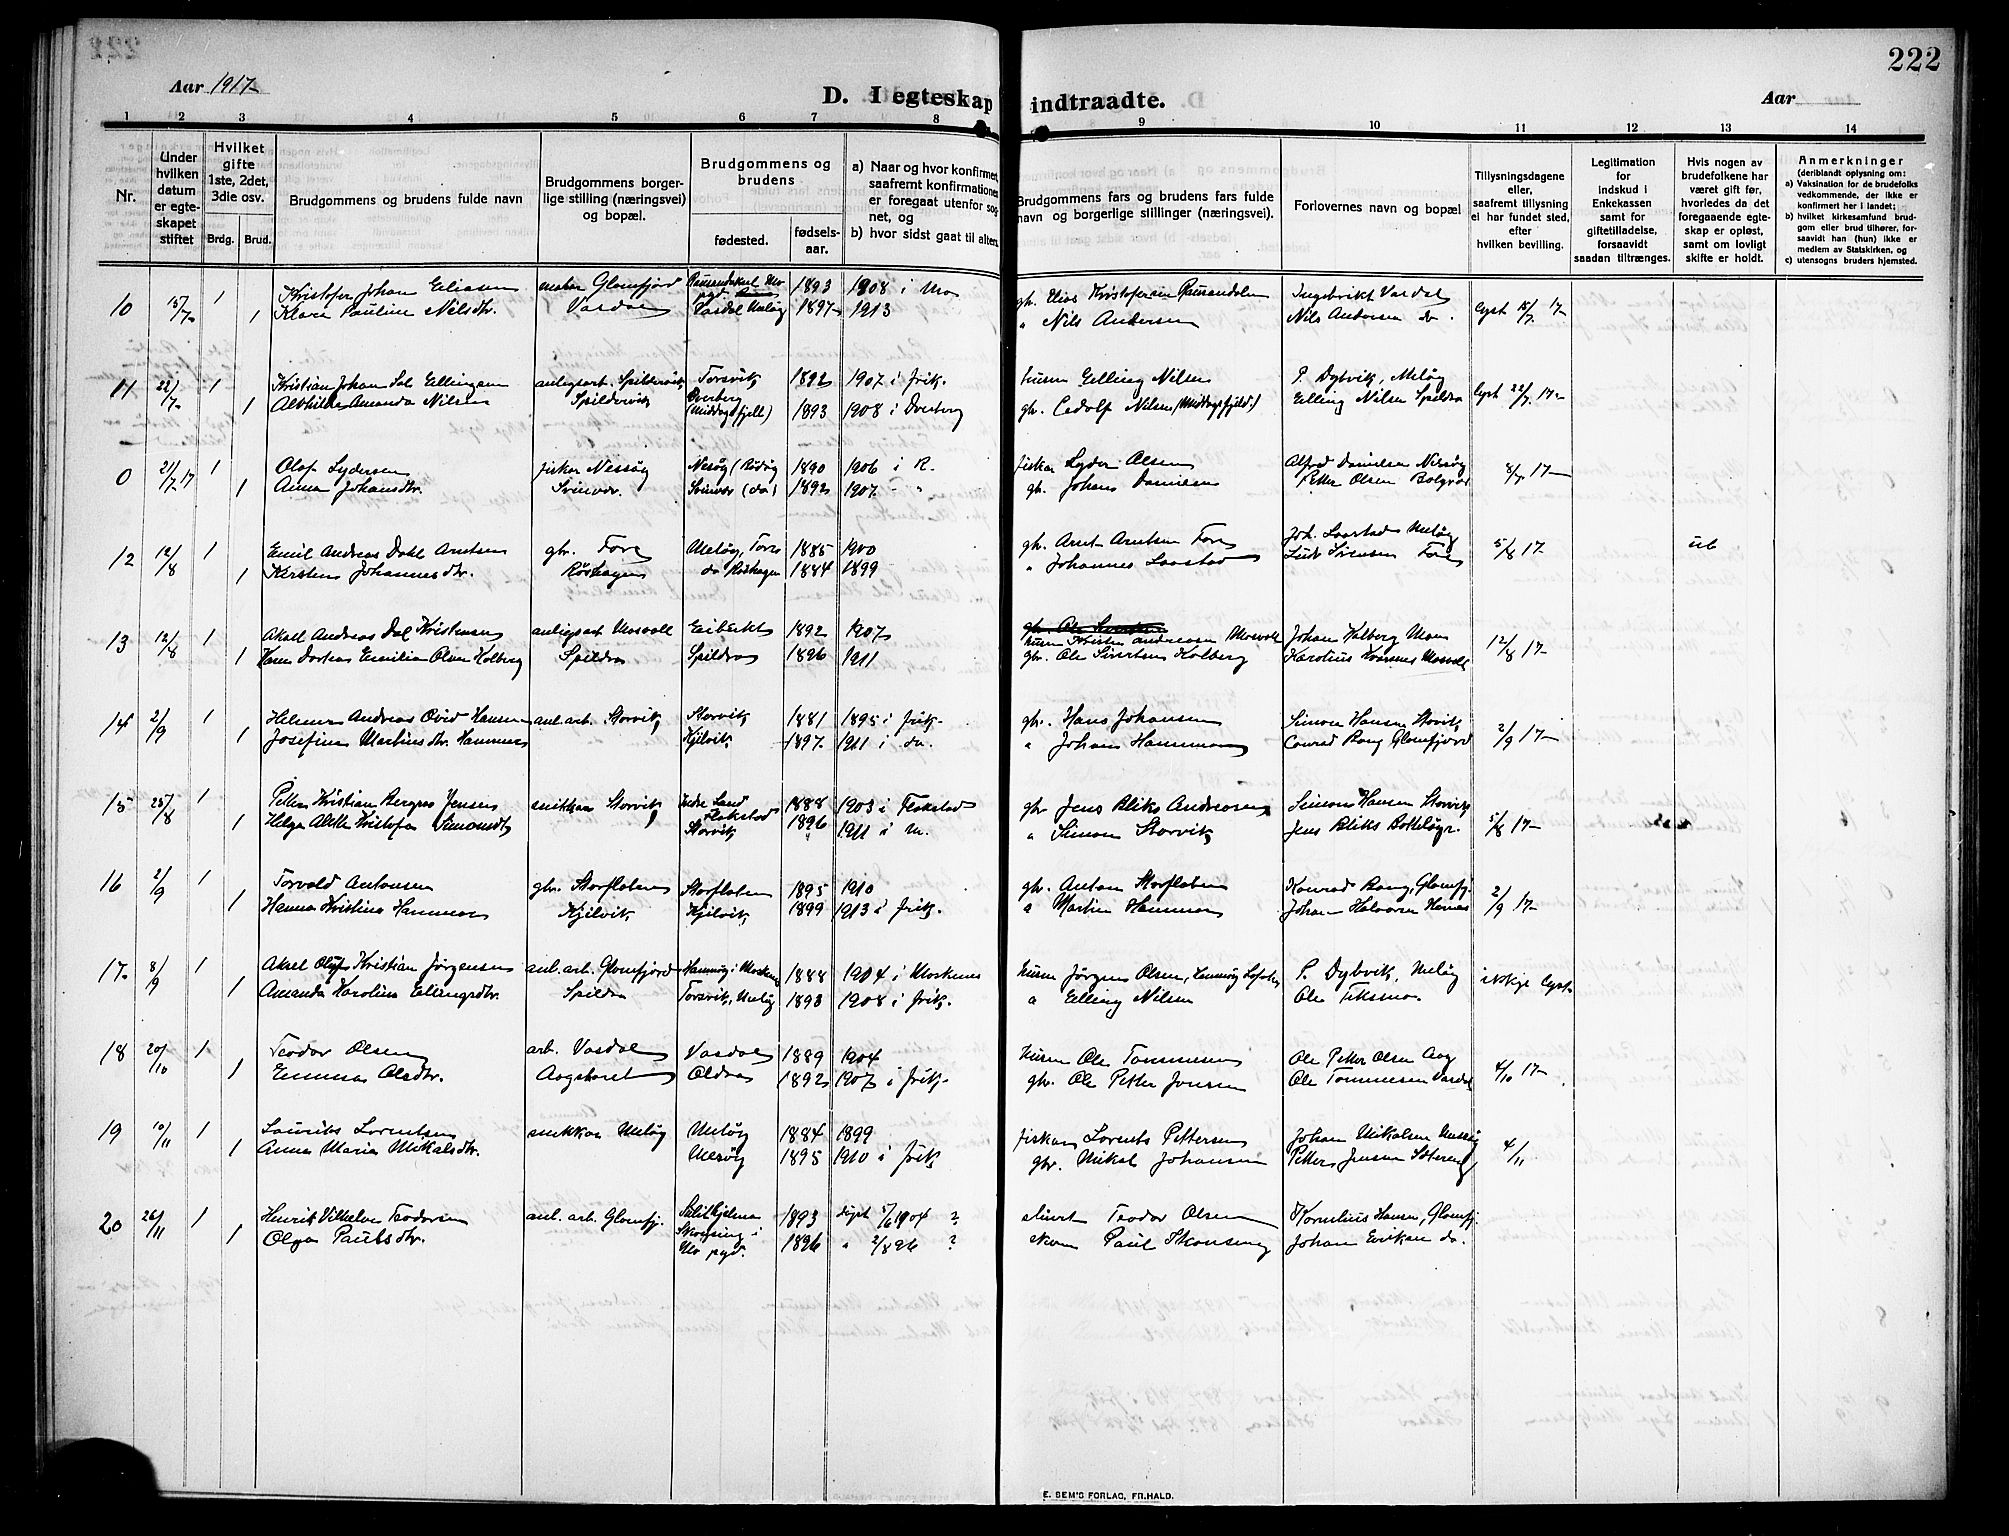 222
Aar 1917
D. I egteskap indtraadte.
Aar
1 2 3 4 5 6 7 8 9 10 11 12 13 14
Nr.
Under hvilken datum er egteskapet stiftet
Hvilket gifte 1ste, 2det, 3die osv.
Brdg. Brud.
Brudgommens og brudens fulde navn
Brudgommens borgerlige stilling (næringsvei) og bopæl.
Brudgommens og brudens
fødested.
fødselsaar.
a) Naar og hvor konfirmert, saafremt konfirmationen er foregaat utenfor sognet, og
b) hvor sidst gaat til alters.
Brudgommens fars og brudens fars fulde navn og borgerlige stillinger (næringsvei).
Forlovernes navn og bopæl
Tillysningsdagene eller, saafremt tillysning ei har fundet sted, efter hvilken bevilling.
Legitimation for indskud i Enkekassen samt for giftetilladelse, forsaavidt saadan tiltrænges.
Hvis nogen av brudefolkene har været gift før, hvorledes da det foregaaende egteskap er opløst, samt om lovligt skifte er holdt.
Anmerkninger
(deriblandt oplysning om:
a) Vaksination for de brudefolks vedkommende, der ikke er konfirmert her i landet;
b) hvilket kirkesamfund brudgom eller brud tilhører, forsaavidt han (hun) ikke er medlem av Statskirken, og
c) utensogns bruders hjemsted.
10 15/7 1 Kristofer Johan Eliasen Glomfjord 1893 1908 i Mo gbr. Elias Kristofersen Ingebrikt Vardal
1 Klara Pauline Nilsdtr. Vasdal Vasdal Meløy 1897 1913 " Nils Andersen Nils Andersen do. lyst 15/7 17
11 22/7 1 Kristian Johan Ellingsen anlegsarb. Spildervik Torsvik 1892 1907 i frik. husm Elling Nilsen P. Dybvik, Meløy lyst 22/7 17
1 Alvhilda Amanda Nilsen Spildervik Överberg (Middagsfjell) 1893 1908 i Dverberg gbr. Cedolf Nilsen (Middagsfjeld) Elling Nilsen Spildra
0 21/7 17 1 Olaf Lydersen fisker Nessøy Nesøy (Rödöy 1890 1906 i R. fisker Lyder Olsen Alfred Danielsen Nessøy 8/7 17
1 Anna Johansdtr. Svinvær. Svinvær (do) 1892 1907 " gbr. Johans Danielsen Petter Olsen Bolgvær
12 12/8 1 Emil Andreas Dahl Arntsen gbr. Fore Meløy, Fore 1885 1900 gbr. Arnt Arntsen Fore Joh. Saarstad Meløy 5/8 17 ub
1 Kirsten Johannesdtr. Röshagen do Röshagen 1884 1899 " Johannes Saarstad Sivert Sörensen Fore
13 12/8 1 Aksel Andreas Dal Kristensen anlegsarb Mosvold 1892 1907 husm Kristen Andreasen Mosvold Johan Kolberg Meløy 12/8 17
1 Karen Dortea Emilie Olsen Kolberg Spildra Spildra 1896 1911 gbr. Ole Sivertsen Kolberg Karolius Kvarsnes Mosvold
14 2/9 1 Helmer Andreas Ovid Hansen anl. arb. Storvik Storvik 1881 1895 i frik. gbr. Hans Johansen Simon Hansen Storvik 2/9 17
1 Josefine Martine dtr. Hammer Kjilvik 1897 1911 i do. " Johan Hammer Conrad Bang Glomfjord
15 25/8 1 Petter Kristian Bergras Jensen snikkar Storvik Indre Sand Flakstad 1888 1903 i Flakstad gbr Jens Bliks Andreasen Simon Hansen Storvik 5/8 17
1 Helga Alette Kristofa Simonsdtr Storvik 1896 1911 i M. " Simon Storvik Jens Bliks
16 2/9 1 Torvald Antonsen gbr. Storflaten Storflaten 1895 1910 gbr. Anton Storflaten Konrad Bang, Glomfj. 2/9 17
1 Hanna Kristina Hammer Kjilvik Kjilvik 1899 1913 i frik. " Martin Hammer Johan Halvorsen
17 8/9 1 Aksel Oluf Kristian Jørgensen anl. arb. Glomfjord Hamnøy i Moskenes 1888 1904 i Moskenes husm Jørgen Olsen, Hamnøy Lofoten P. Dybvik, Meløy ikkje lyst
1 Amanda Karolina Ellingsdtr. Spildra Torsvik, Meløy 1893 1908 i frik. " Elling Nilsen Ole Teksmo.
18 20/10 1 Teodor Olsen arb. Vasdal Vasdal 1889 1904 husm Ole Tommesen Ole Petter Olsen Aag 4/10 17
1 Emma Olsdtr. Aagskaret Oldra 1892 1907 i frik. gbr. Ole Petter Jensen Ole Tommesen Vasdal
19 10/11 1 Laurits Lorentsen snekkar Meløy Meløy 1884 1899 fiskar Lorents Pettersen Johan Mikalsen Meløy 4/11
1 Anna Maria Mikalsdtr. Meløy 1895 1910 i frik gbr. Mikal Johansen Petter Jensen
20 26/11 1 Henrik Vilhelm Teodorsen anl. arb. Glomfj. Sulitjelma 1893 döpt 5/6 1904 ? Teodor Olsen Kornelius Hansen, Glomfj.
1 Olga Paulsdtr. Skonseng i Mo pgd. 1896 " 2/8 96 ? Paul Skonseng Johan Eriksen do.
E. SEM'S FORLAG, FR.HALD.